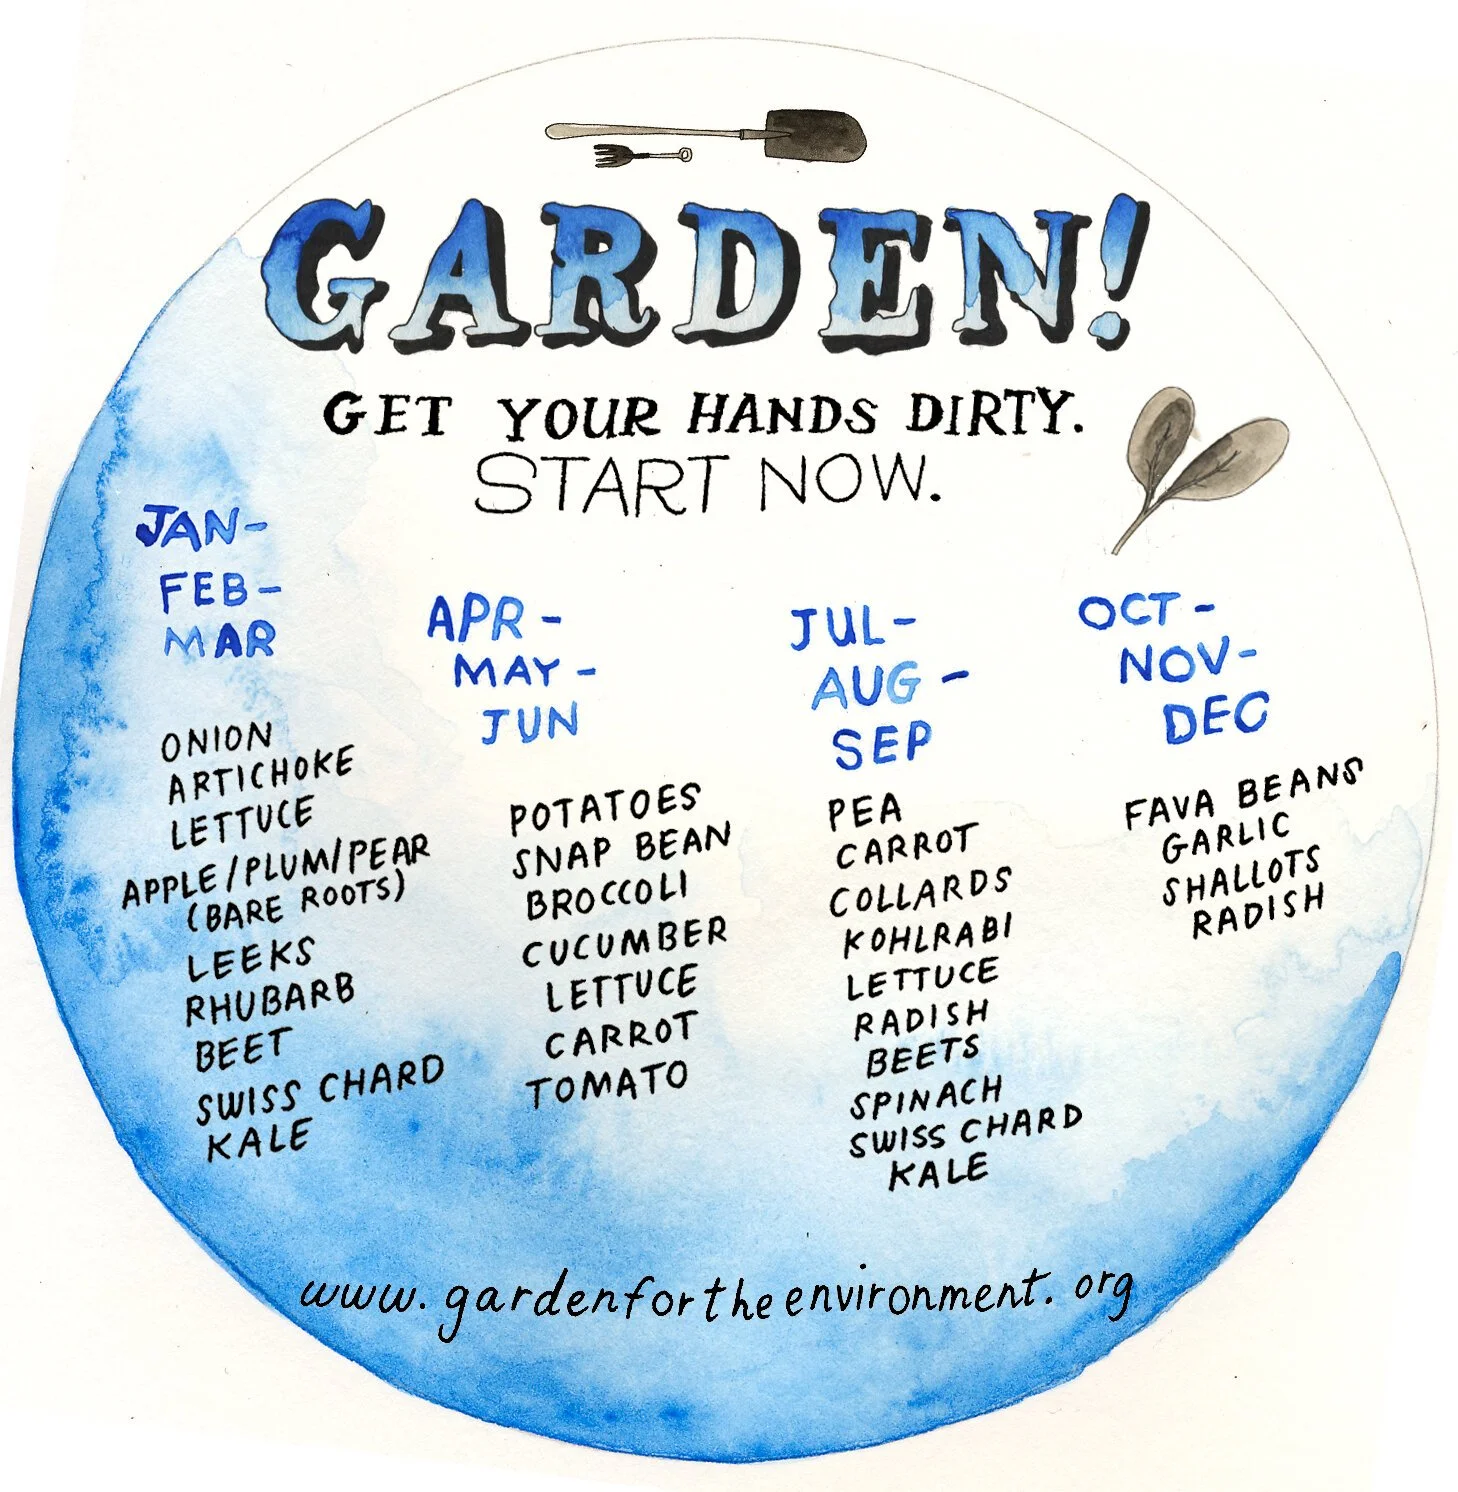 GARDEN!
GET YOUR HANDS DIRTY.
START NOW.
JAN-
FEB-
MAR
ONION
ARTICHOKE
LETTUCE
APPLE/PLUM/PEAR
(BARE ROOTS)
LEEKS
RHUBARB
BEET
SWISS CHARD
KALE
APR-
MAY-
JUN
POTATOES
SNAP BEAN
BROCCOLI
CUCUMBER
LETTUCE
CARROT
TOMATO
JUL-
AUG-
SEP
PEA
CARROT
COLLARDS
KOHLRABI
LETTUCE
RADISH
BEETS
SPINACH
SWISS CHARD
KALE
OCT-
NOV-
DEC
FAVA BEANS
GARLIC
SHALLOTS
RADISH
www.gardenfortheenvironment.org